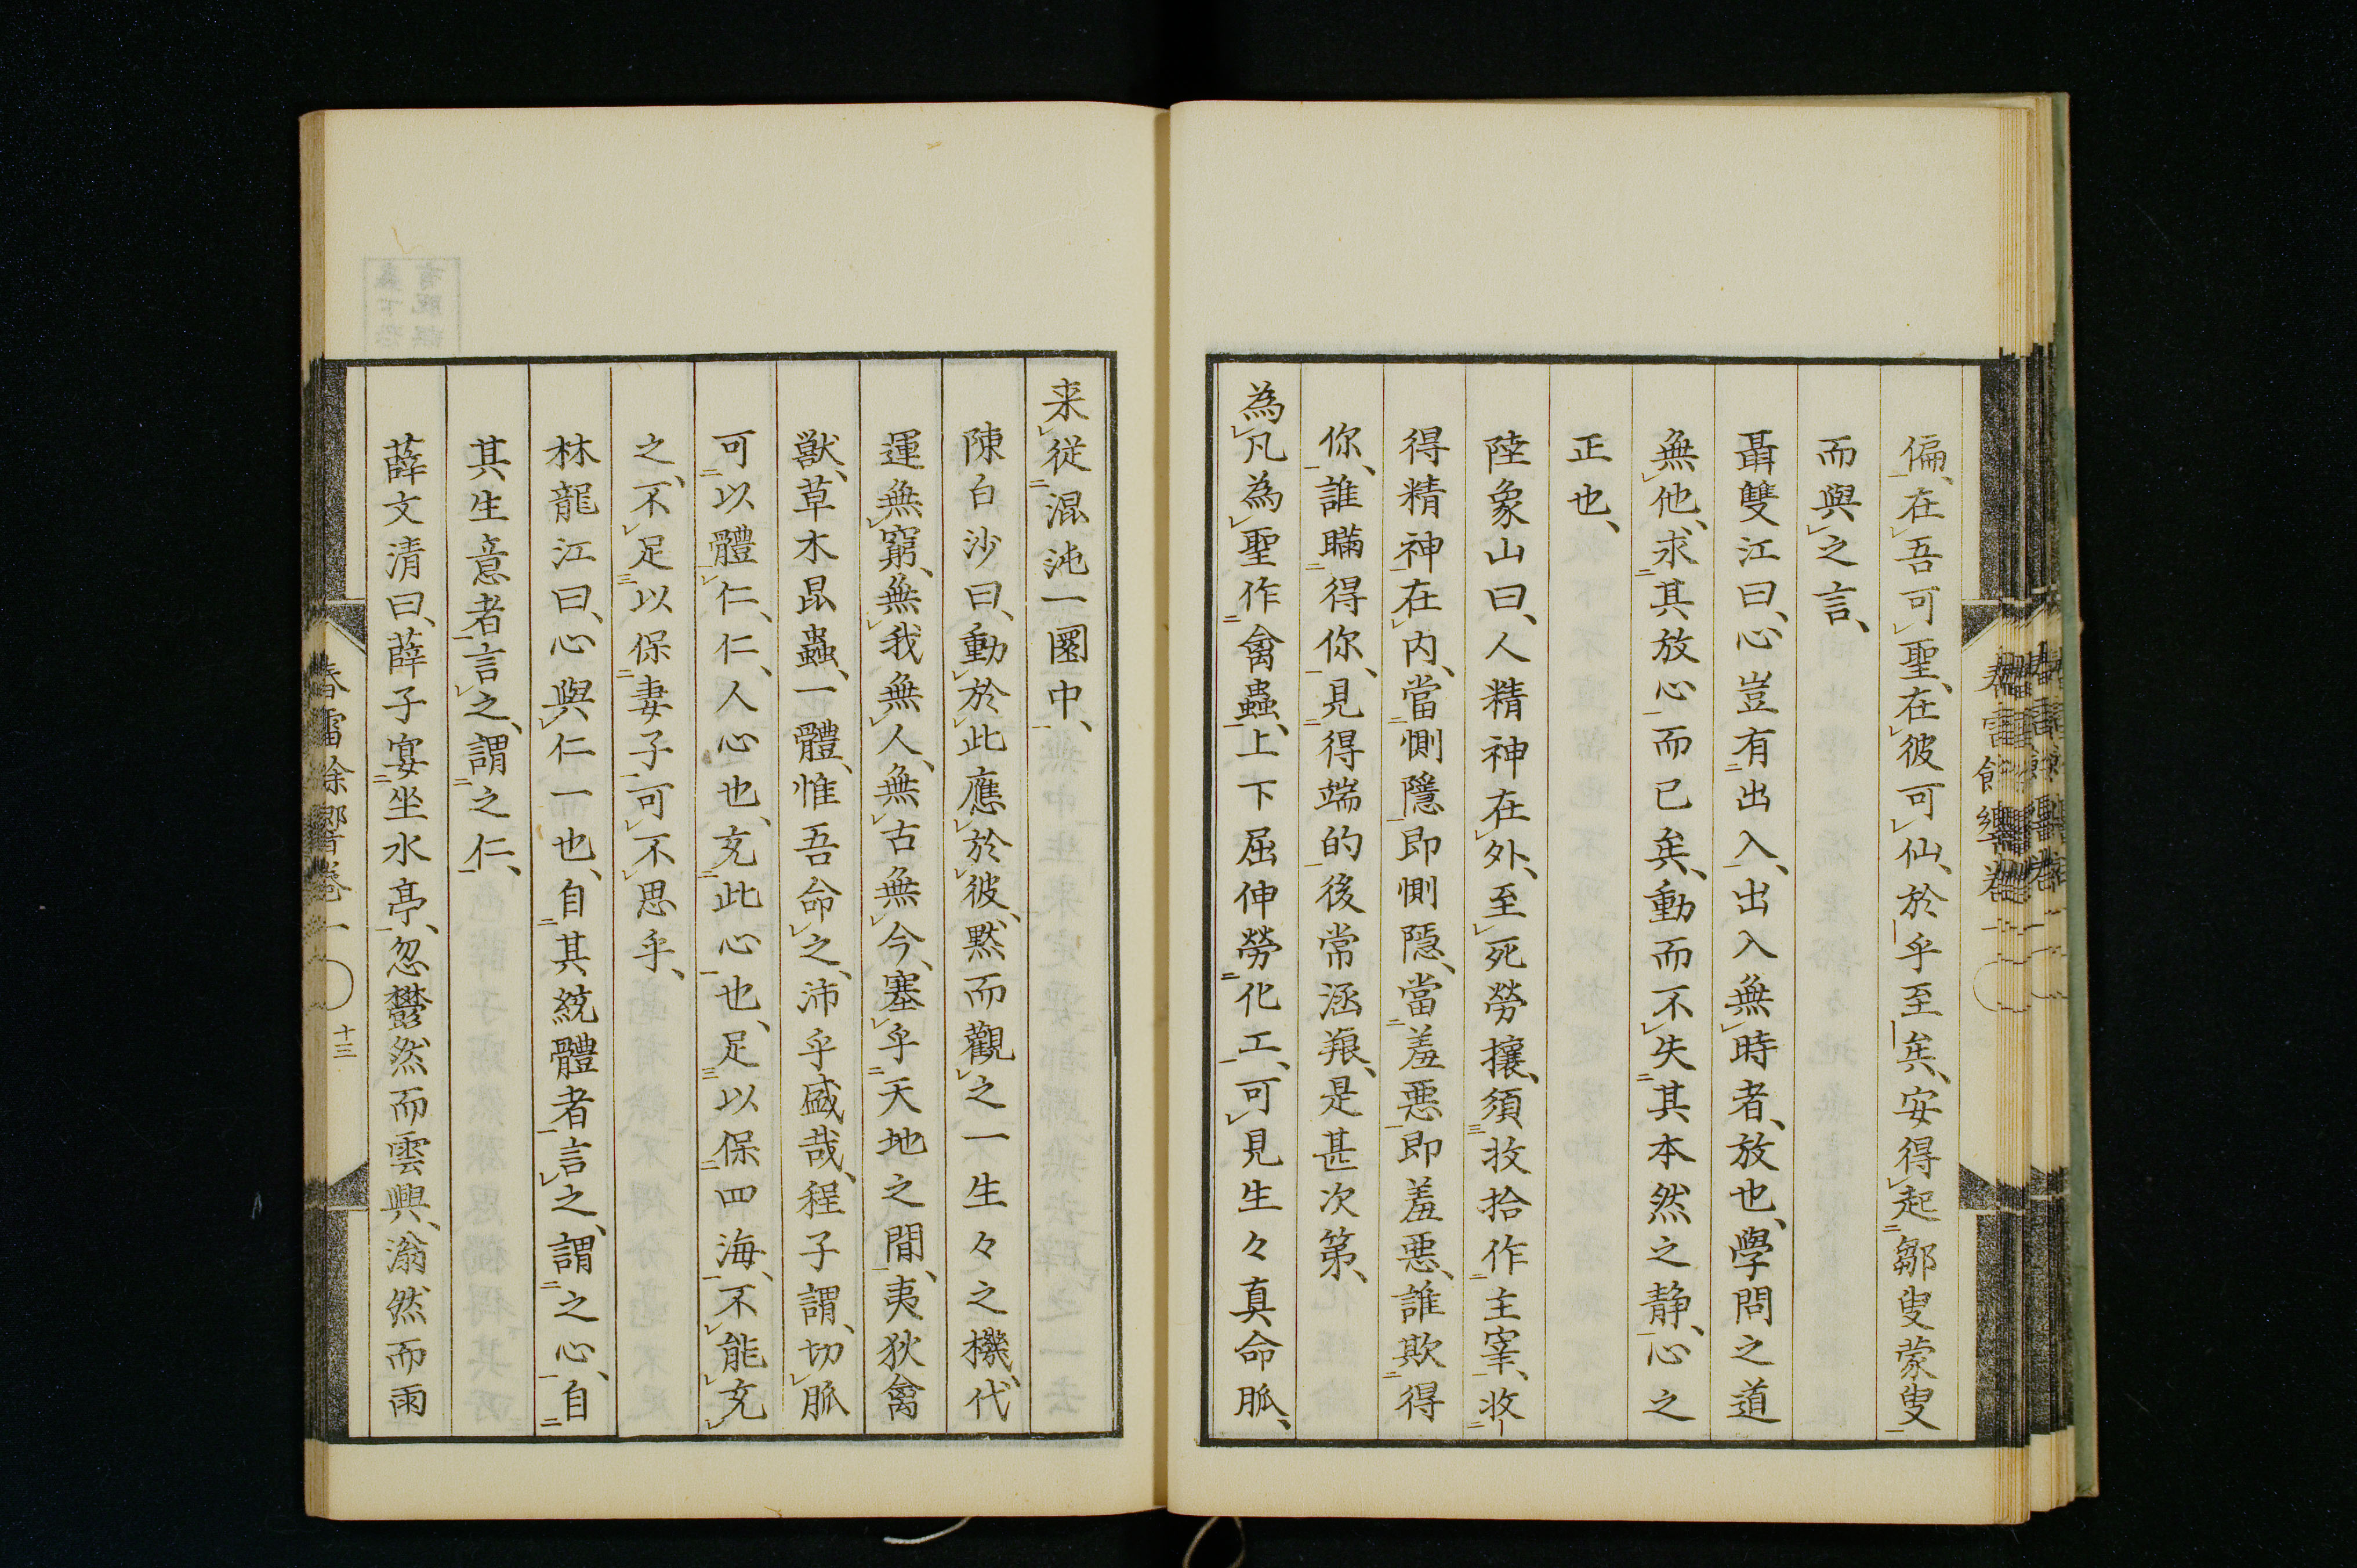 偏、在吾可聖、在彼可仙、於乎至矣、安得起鄒叟蒙叟
而與之言、
聶雙江曰、心豈有出入、出入無時者、放也、學問之道
無他、求其放心而已矣、動而不失其本然之静、心之
正也、
陸象山曰、人精神在外、至死勞攘、須收拾作主宰、收
得精神在内、當惻隱即惻隱、當羞惡即羞惡、誰欺得
你、誰瞞得你、見得端的後常涵養、是甚次第、
為凡為聖作禽蟲、上下屈伸勞化工、可見生々真命脈、
来従混沌一圈中、
陳白沙曰、動於此應於彼、黙而觀之一生々之機、代
運無窮、無我無人、無古無今、塞乎天地之間、夷狄禽
獣、草木昆蟲、一體、惟吾命之、沛乎盛哉、程子謂、切脈
可以體仁、仁、人心也、充此心也、足以保四海、不能充
之、不足以保妻子、可不思乎、
林龍江曰、心與仁一也、自其統體者言之、謂之心、自
其生意者言之、謂之仁、
薛文清曰、薛子宴坐水亭、忽鬱然而雲興、滃然而雨
春雷餘響巻一
十三